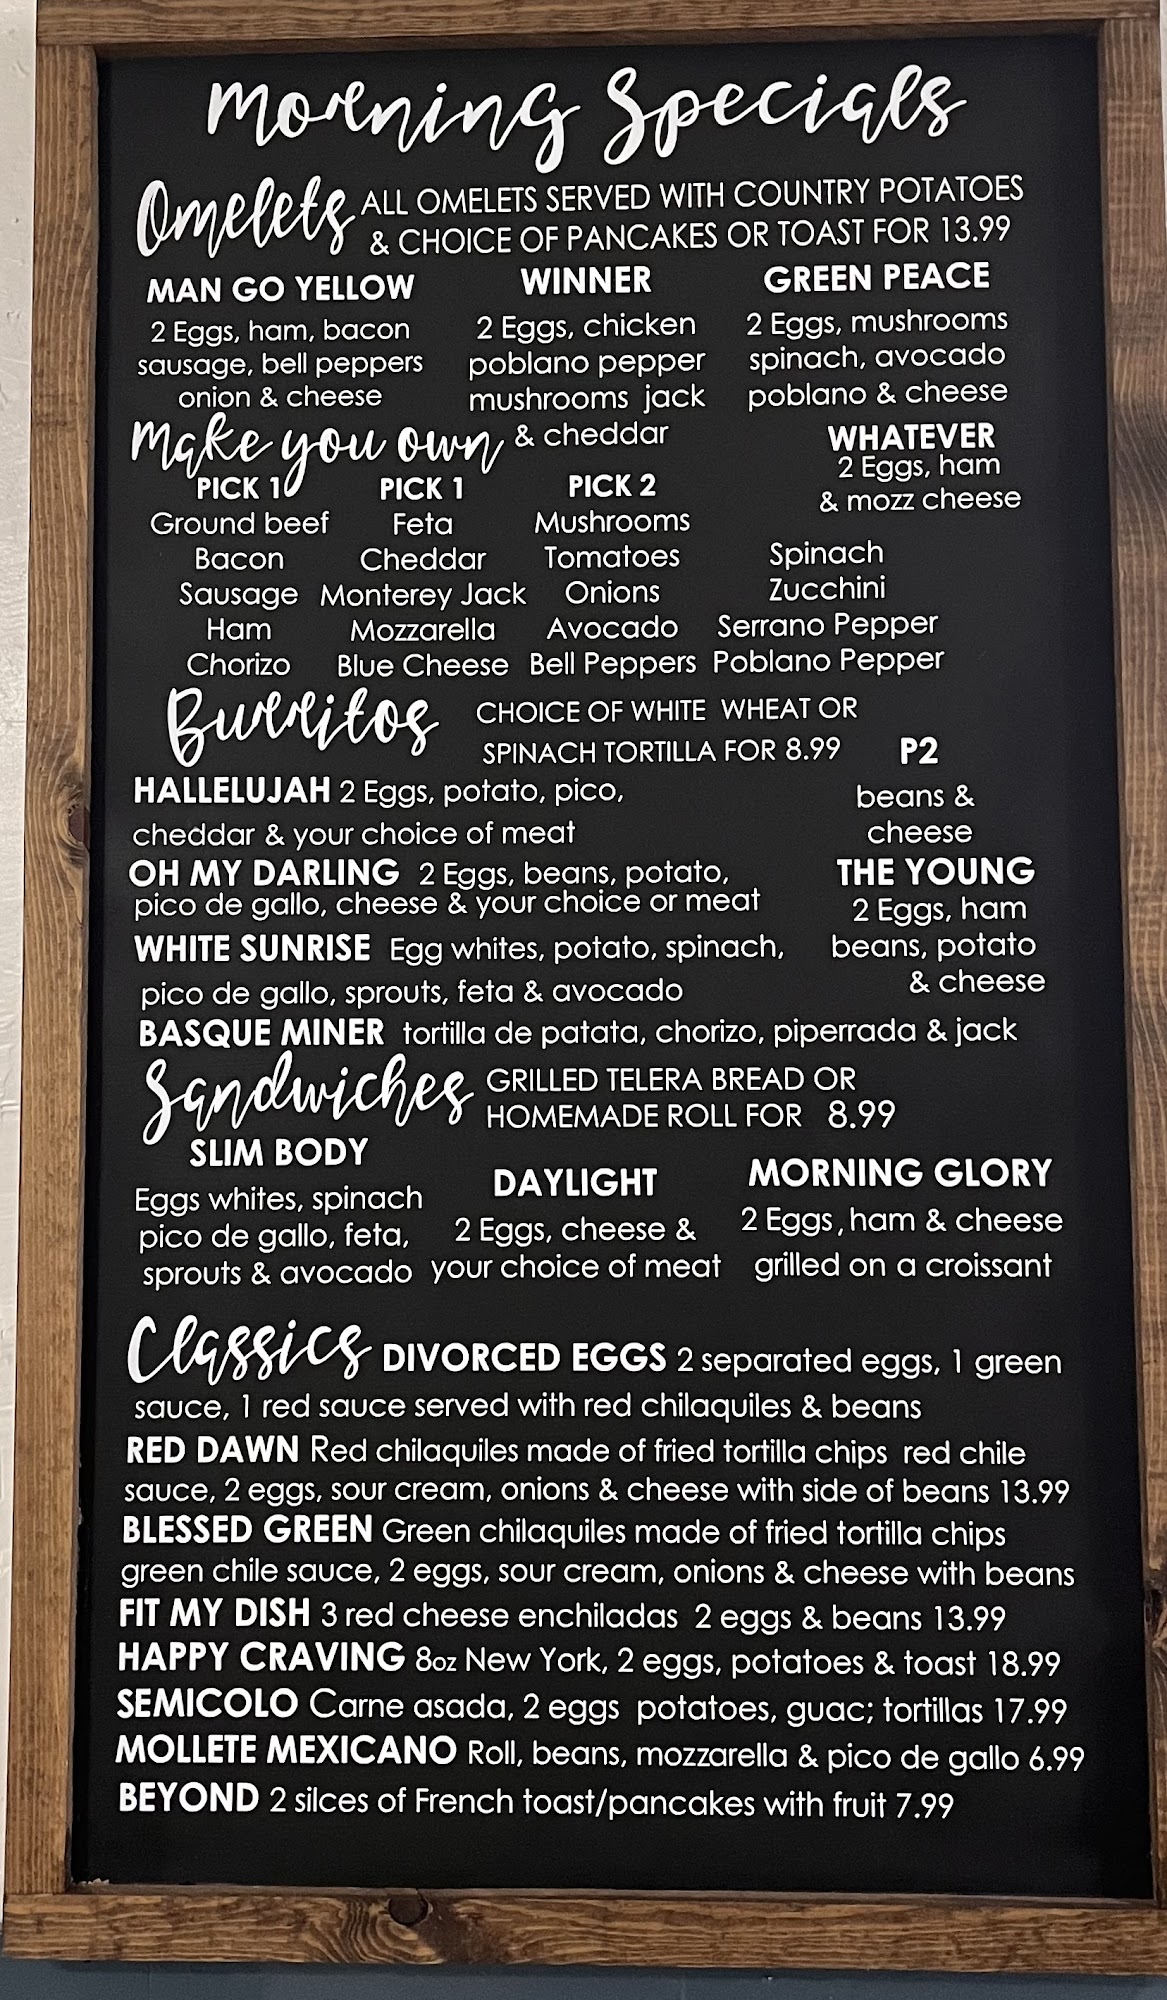 Morning Specials
Omelets ALL OMELETS SERVED WITH COUNTRY POTATOES
& CHOICE OF PANCAKES OR TOAST FOR 13.99
MAN GO YELLOW
2 Eggs, ham, bacon
sausage, bell peppers
onion & cheese
WINNER
2 Eggs, chicken
poblano pepper
mushrooms jack
& cheddar
GREEN PEACE
2 Eggs, mushrooms
spinach, avocado
poblano & cheese
WHATEVER
2 Eggs, ham
& mozz cheese
Make you own
PICK 1
Ground beef
Bacon
Sausage
Ham
Chorizo
PICK 1
Feta
Cheddar
Monterey Jack
Mozzarella
Blue Cheese
PICK 2
Mushrooms
Tomatoes
Onions
Avocado
Bell Peppers
Spinach
Zucchini
Serrano Pepper
Poblano Pepper
Burritos CHOICE OF WHITE WHEAT OR
SPINACH TORTILLA FOR 8.99
HALLELUJAH 2 Eggs, potato, pico,
cheddar & your choice of meat
OH MY DARLING 2 Eggs, beans, potato,
pico de gallo, cheese & your choice or meat
WHITE SUNRISE Egg whites, potato, spinach,
pico de gallo, sprouts, feta & avocado
P2
beans &
cheese
THE YOUNG
2 Eggs, ham
beans, potato
& cheese
BASQUE MINER tortilla de patata, chorizo, piperrada & jack
Sandwiches GRILLED TELERA BREAD OR
HOMEMADE ROLL FOR 8.99
SLIM BODY
Eggs whites, spinach
pico de gallo, feta,
sprouts & avocado
DAYLIGHT
2 Eggs, cheese &
your choice of meat
MORNING GLORY
2 Eggs, ham & cheese
grilled on a croissant
Classics DIVORCED EGGS 2 separated eggs, 1 green
sauce, 1 red sauce served with red chilaquiles & beans
RED DAWN Red chilaquiles made of fried tortilla chips red chile
sauce, 2 eggs, sour cream, onions & cheese with side of beans 13.99
BLESSED GREEN Green chilaquiles made of fried tortilla chips
green chile sauce, 2 eggs, sour cream, onions & cheese with beans
FIT MY DISH 3 red cheese enchiladas 2 eggs & beans 13.99
HAPPY CRAVING 8oz New York, 2 eggs, potatoes & toast 18.99
SEMICOLO Carne asada, 2 eggs potatoes, guac; tortillas 17.99
MOLLETE MEXICANO Roll, beans, mozzarella & pico de gallo 6.99
BEYOND 2 silces of French toast/pancakes with fruit 7.99